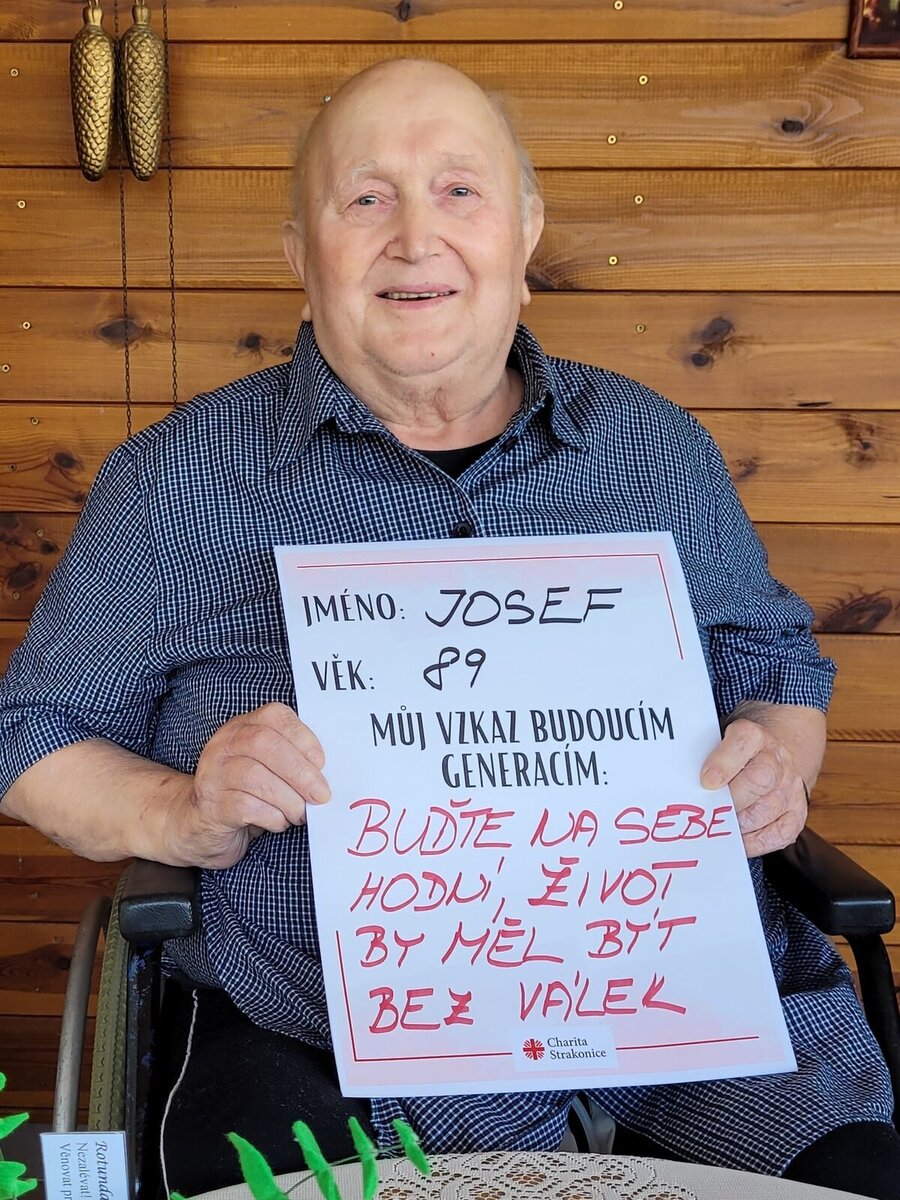 JMÉNO: JOSEF
VĚK: 89
MŮJ VZKAZ BUDOUCÍM
GENERACÍM:
BUĎTE NA SEBE
HODNÍ, ŽIVOT
BY MĚL BÝT
BEZ VÁLEK
Charita
Strakonice
Rotunda
Nezalévat!
Věnovat